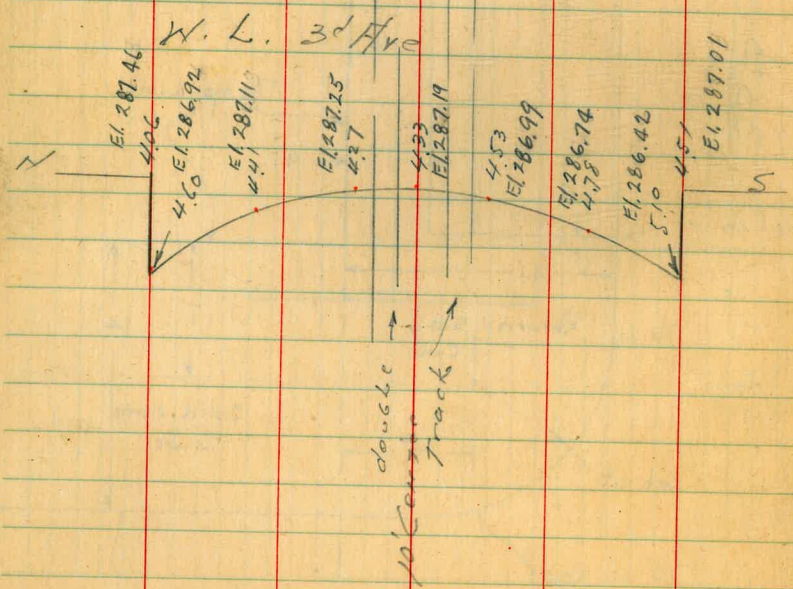 W. L. 3d Ave
N
El. 287.46
4.06
El. 286.92
4.60
El. 287.11
4.41
El. 287.25
4.27
4.33
El. 287.19
4.53
El. 286.99
El. 286.74
4.78
El. 286.42
5.10
4.51
El. 287.01
S
double
10' Center
Track